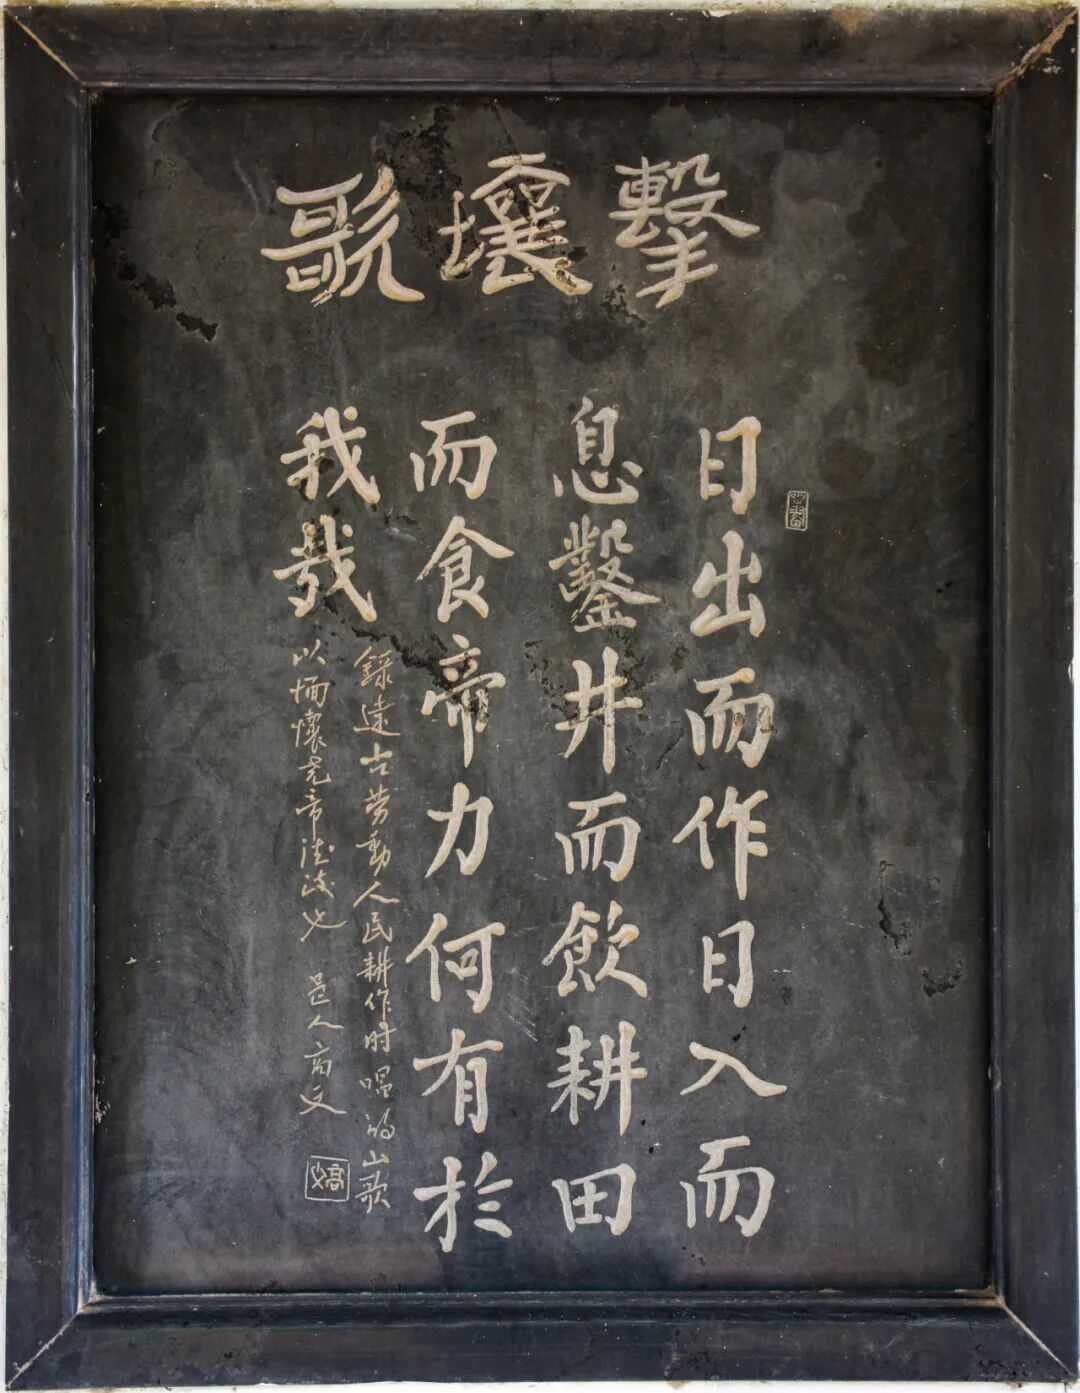 擊壤歌
日出而作日入而
息鑿井而飲耕田
而食帝力何有於
我哉
錄遠古勞動人民耕作時唱的山歌
以緬懷堯帝德政也 邑人高文